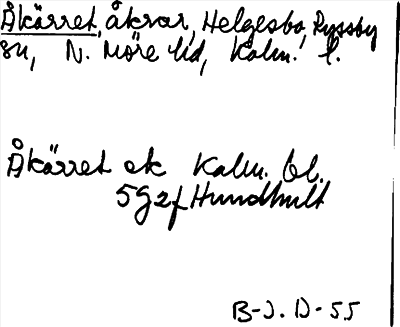 Åkärret, åkrar, Helgesbo, Ryssby
sn, N. Möre hd, Kalm. l.
Åkärret ek Kalm. bl.
5G2f Hundhult
B-J. D-55